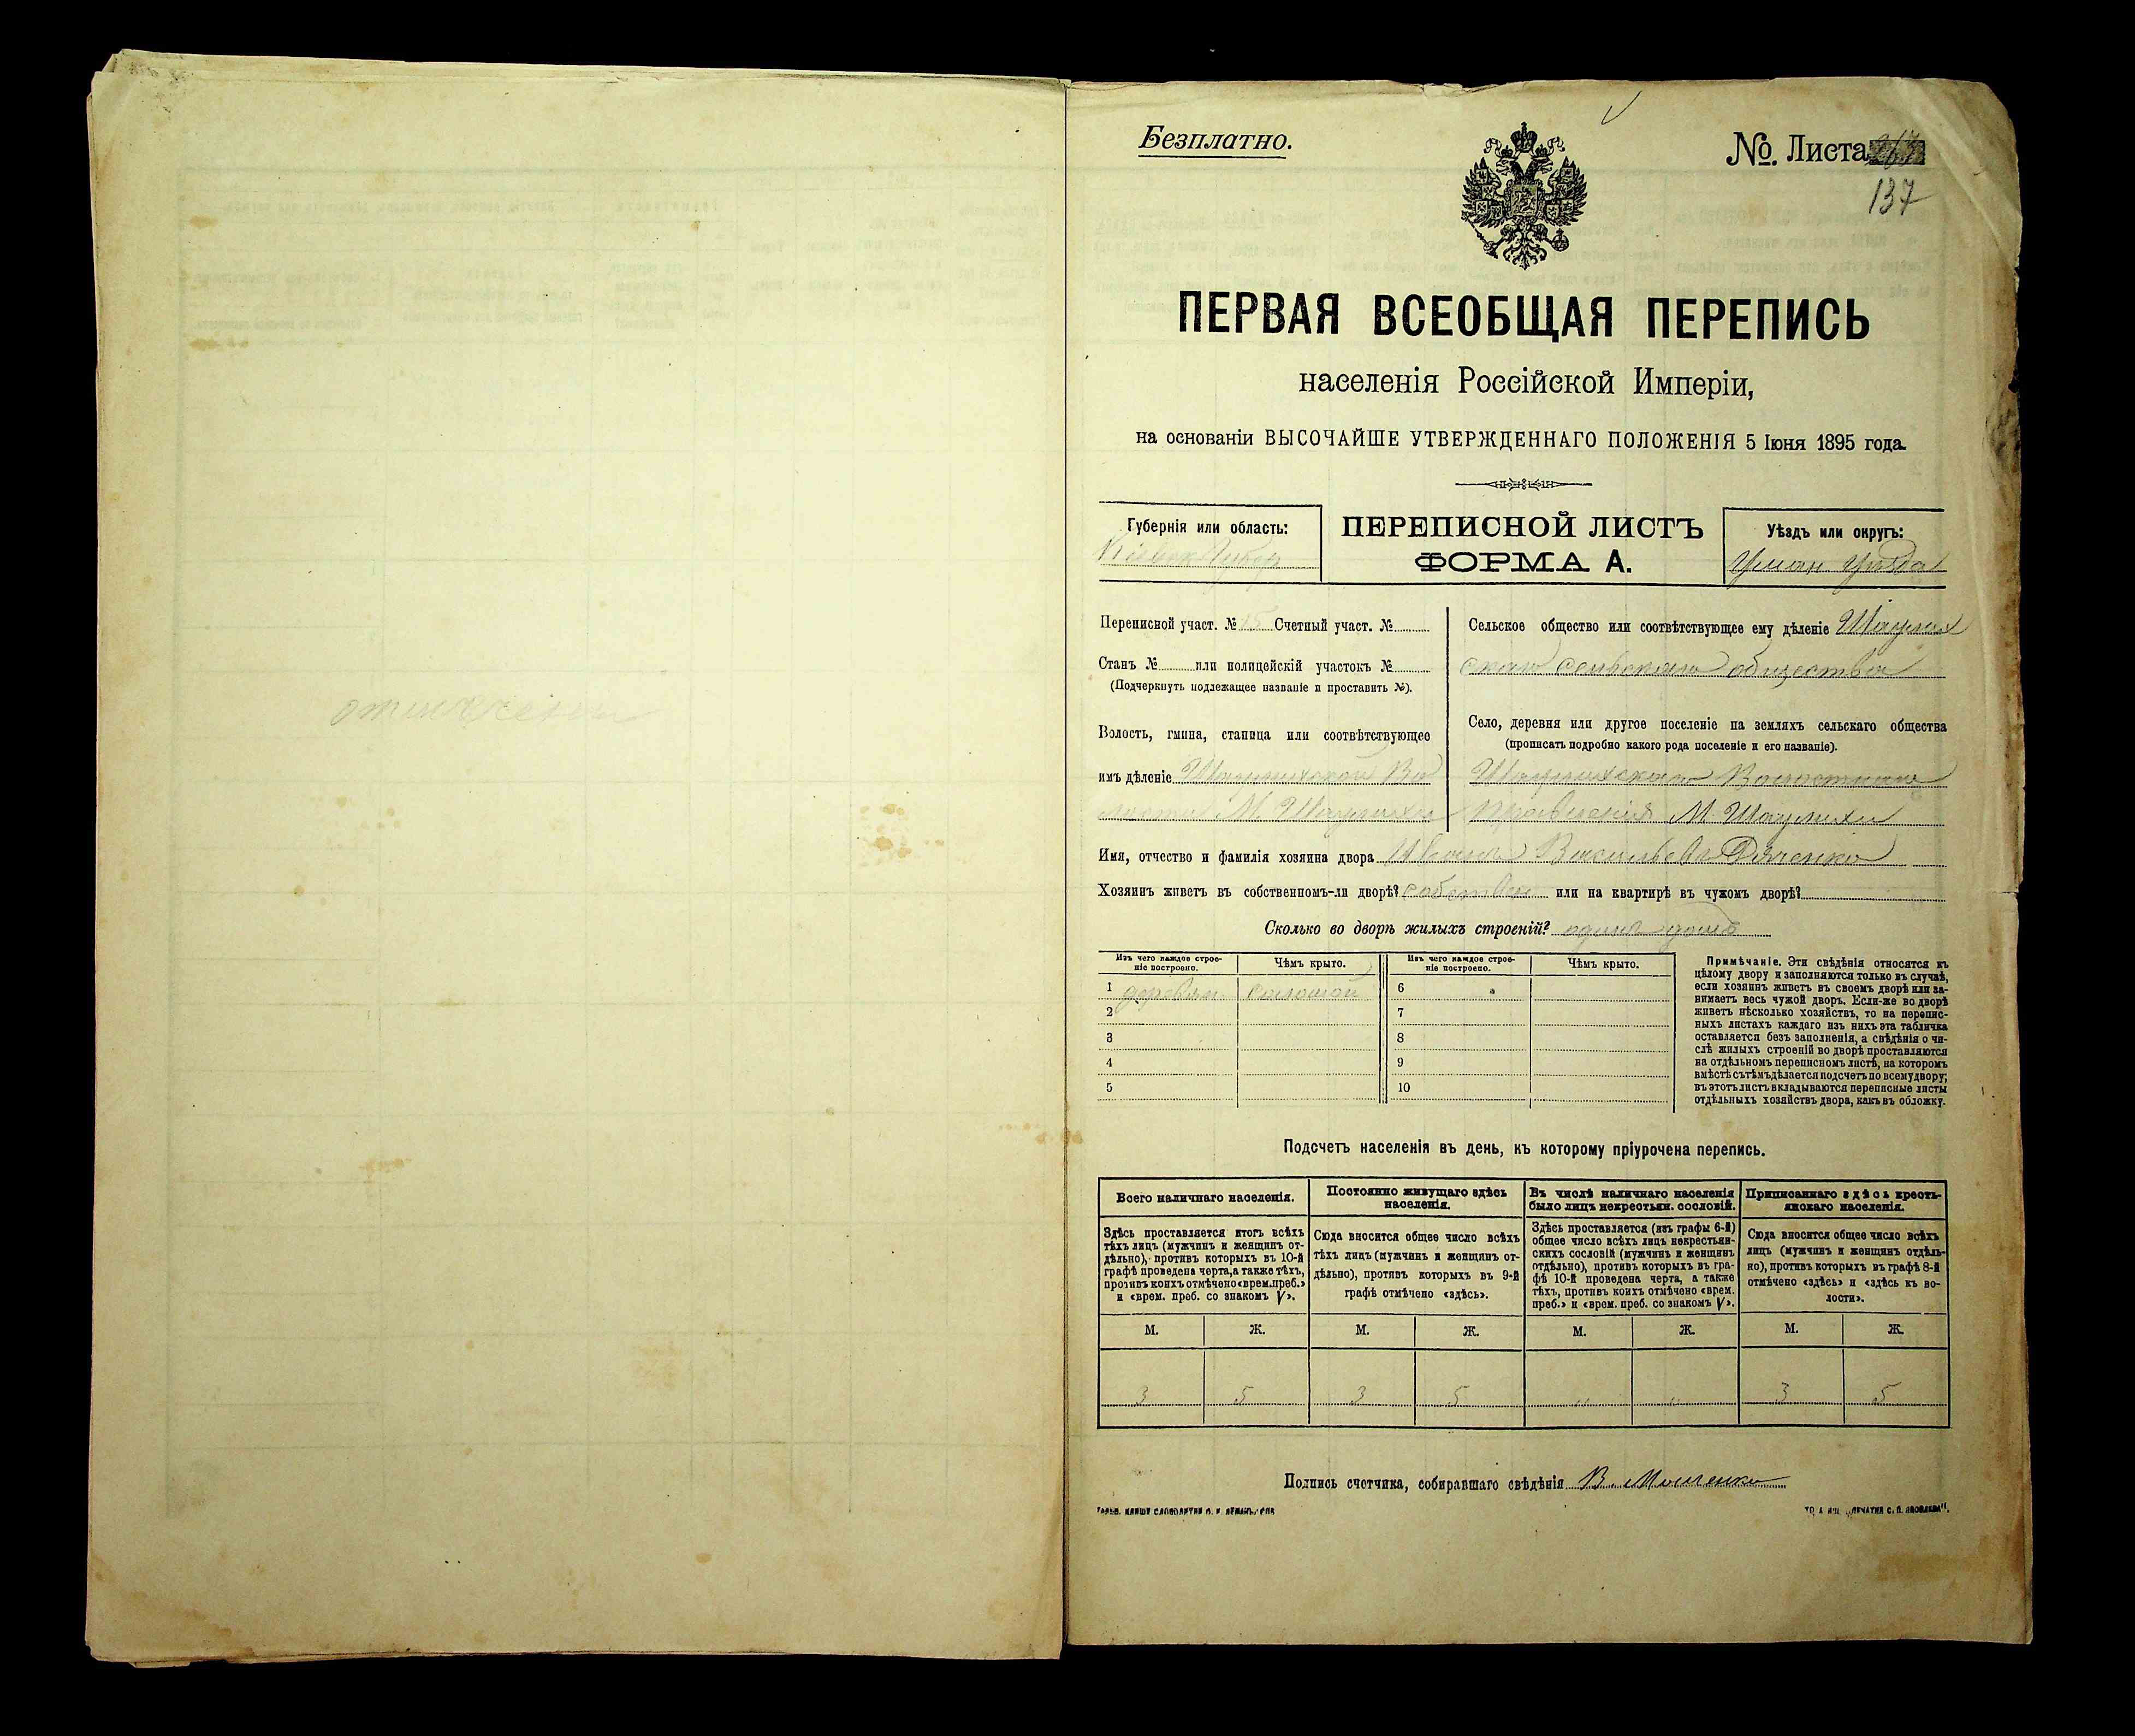 отмѣчены
Безплатно.
№. Листа
137
ПЕРВАЯ ВСЕОБЩАЯ ПЕРЕПИСЬ
населенія Россійской Имперіи,
на основаніи ВЫСОЧАЙШЕ УТВЕРЖДЕННАГО ПОЛОЖЕНІЯ 5 Іюня 1895 года.
Губернія или область:
Кіевск Губер
ПЕРЕПИСНОЙ ЛИСТЪ
ФОРМА А.
Уѣздъ или округъ:
Уман Уѣзда
Переписной участ. № 15 Счетный участ. №
Станъ № или полицейскій участокъ №
(Подчеркнуть подлежащее названіе и проставить №).
Волость, гмина, станица или соотвѣтствующее
имъ дѣленіе Шаулихской Во
лости М. Шаулиха
Сельское общество или соотвѣтствующее ему дѣленіе Шаулих
скаго сельскаго общества
Село, деревня или другое поселеніе на земляхъ сельскаго общества
(прописать подробно какого рода поселеніе и его названіе).
Шаулихскаго Волостнаго
Правленія М. Шаулиха
Имя, отчество и фамилія хозяина двора Иванъ Васильевъ Дяченко
Хозяинъ живетъ въ собственномъ-ли дворѣ? собствен или на квартирѣ въ чужомъ дворѣ?
Сколько во дворѣ жилыхъ строеній? одинъ домъ
Изъ чего каждое строе-
ніе построено.
Чѣмъ крыто.
Изъ чего каждое строе-
ніе построено.
Чѣмъ крыто.
1 деревян. соломой 6
2 7
3 8
4 9
5 10
Примѣчаніе. Эти свѣдѣнія относятся къ
цѣлому двору и заполняются только въ случаѣ,
если хозяинъ живетъ въ своемъ дворѣ или за-
нимаетъ весь чужой дворъ. Если-же во дворѣ
живетъ нѣсколько хозяйствъ, то на перепис-
ныхъ листахъ каждаго изъ нихъ эта табличка
оставляется безъ заполненія, а свѣдѣнія о чи-
слѣ жилыхъ строеній во дворѣ проставляются
на отдѣльномъ переписномъ листѣ, на которомъ
вмѣстѣ съ тѣмъ дѣлается подсчетъ по всему двору;
въ этотъ листъ вкладываются переписные листы
отдѣльныхъ хозяйствъ двора, какъ въ обложку.
Подсчетъ населенія въ день, къ которому пріурочена перепись.
Всего наличнаго населенія.
Здѣсь проставляется итогъ всѣхъ
тѣхъ лицъ (мужчинъ и женщинъ от-
дѣльно), противъ которыхъ въ 10-й
графѣ проведена черта, а также тѣхъ,
противъ коихъ отмѣчено «врем. преб.»
и «врем. преб. со знакомъ V».
Постоянно живущаго здѣсь
населенія.
Сюда вносится общее число всѣхъ
тѣхъ лицъ (мужчинъ и женщинъ от-
дѣльно), противъ которыхъ въ 9-й
графѣ отмѣчено «здѣсь».
Въ числѣ наличнаго населенія
было лицъ некрестьян. сословій.
Здѣсь проставляется (изъ графы 6-й)
общее число всѣхъ лицъ некрестьян-
скихъ сословій (мужчинъ и женщинъ
отдѣльно), противъ которыхъ въ гра-
фѣ 10-й проведена черта, а также
тѣхъ, противъ коихъ отмѣчено «врем.
преб.» и «врем. преб. со знакомъ V».
Приписаннаго здѣсь кресть-
янскаго населенія.
Сюда вносится общее число всѣхъ
лицъ (мужчинъ и женщинъ отдѣль-
но), противъ которыхъ въ графѣ 8-й
отмѣчено «здѣсь» и «здѣсь къ во-
лости».
М. Ж. М. Ж. М. Ж. М. Ж.
3 5 3 5 " " 3 5
Подпись счетчика, собиравшаго свѣдѣнія В. Мошенко